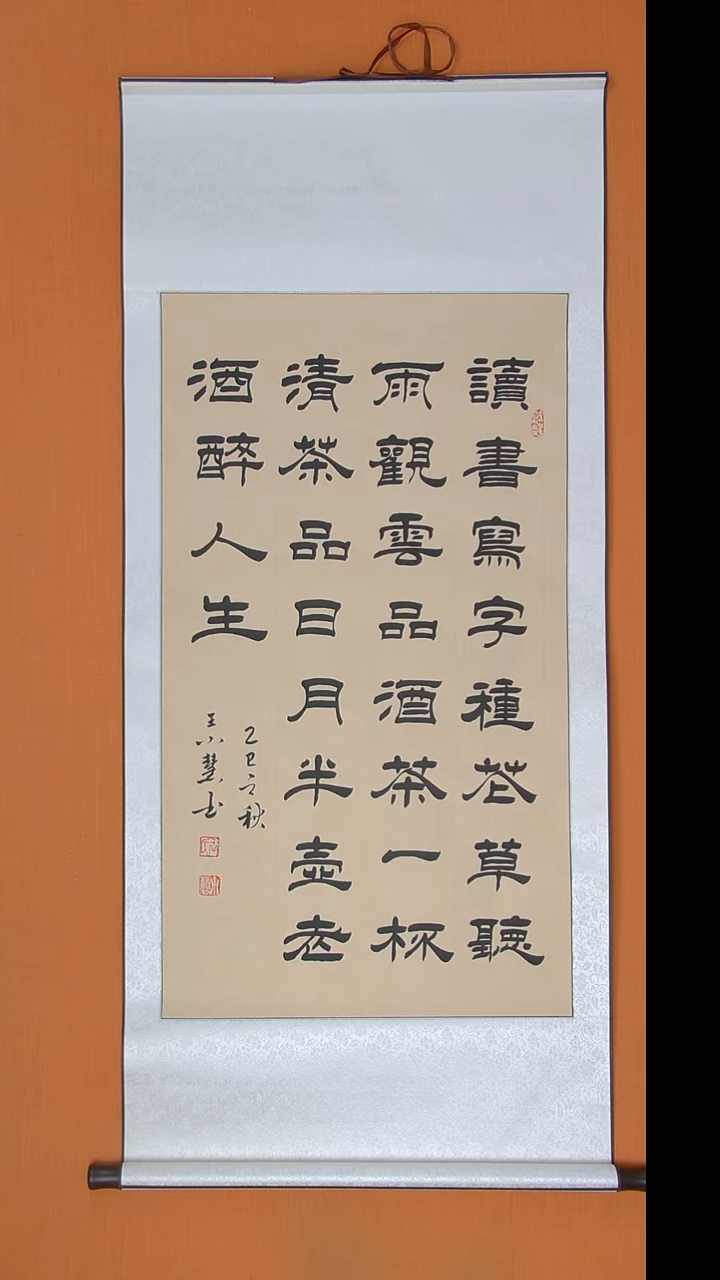 讀書寫字種花草聽
雨觀雲品酒茶一杯
清茶品日月半壺老
酒醉人生
乙巳立秋
王小慧书